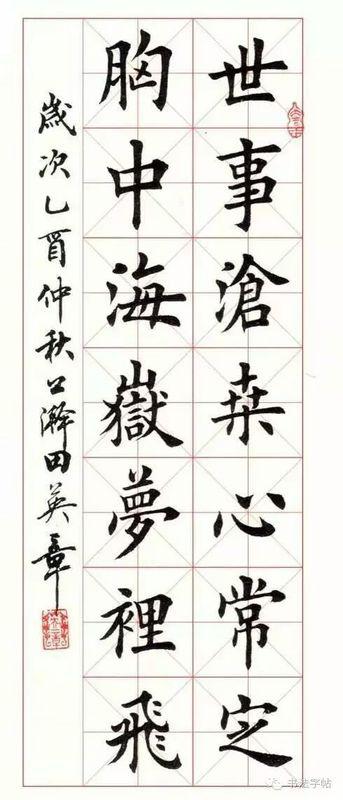 世事滄桒心常定
胸中海嶽夢裡飛
歲次乙酉仲秋
田英章
书法字帖